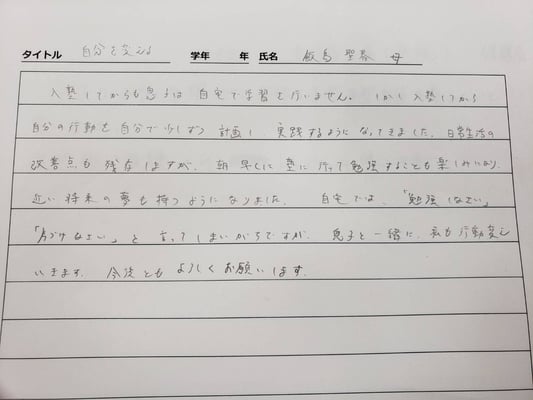 タイトル 自分を変える 学年 年 氏名 飯島 聖 母
入塾してからも息子は自宅で学習を行いません。しかし入塾してから
自分の行動を自分で少しずつ計画し、実践するようになってきました。日常生活の
改善点も残りますが、朝早くに塾に行って勉強することも楽しみになり、
近い将来の夢も持つようになりました。 自宅では、「勉強しなさい」
「片づけなさい」と言ってしまいがちですが、息子と一緒に、私も行動変え
いきます。今後ともよろしくお願いします。